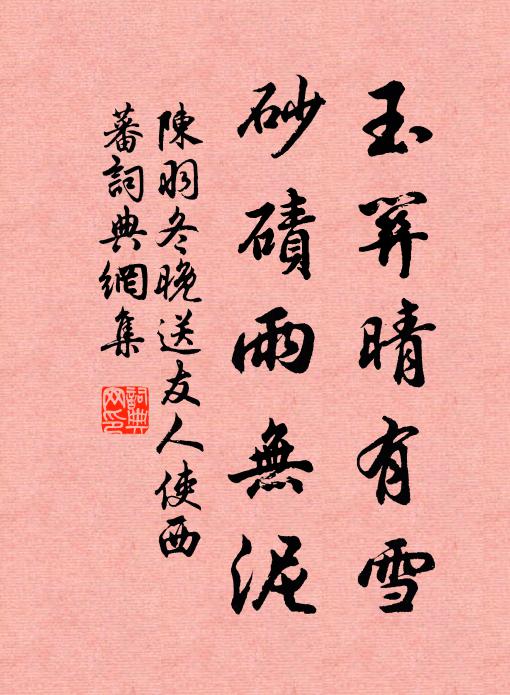 玉關晴有雪
砂磧雨無泥
陳羽冬晚送友人使西
蕃詞典網集
詞典
网印